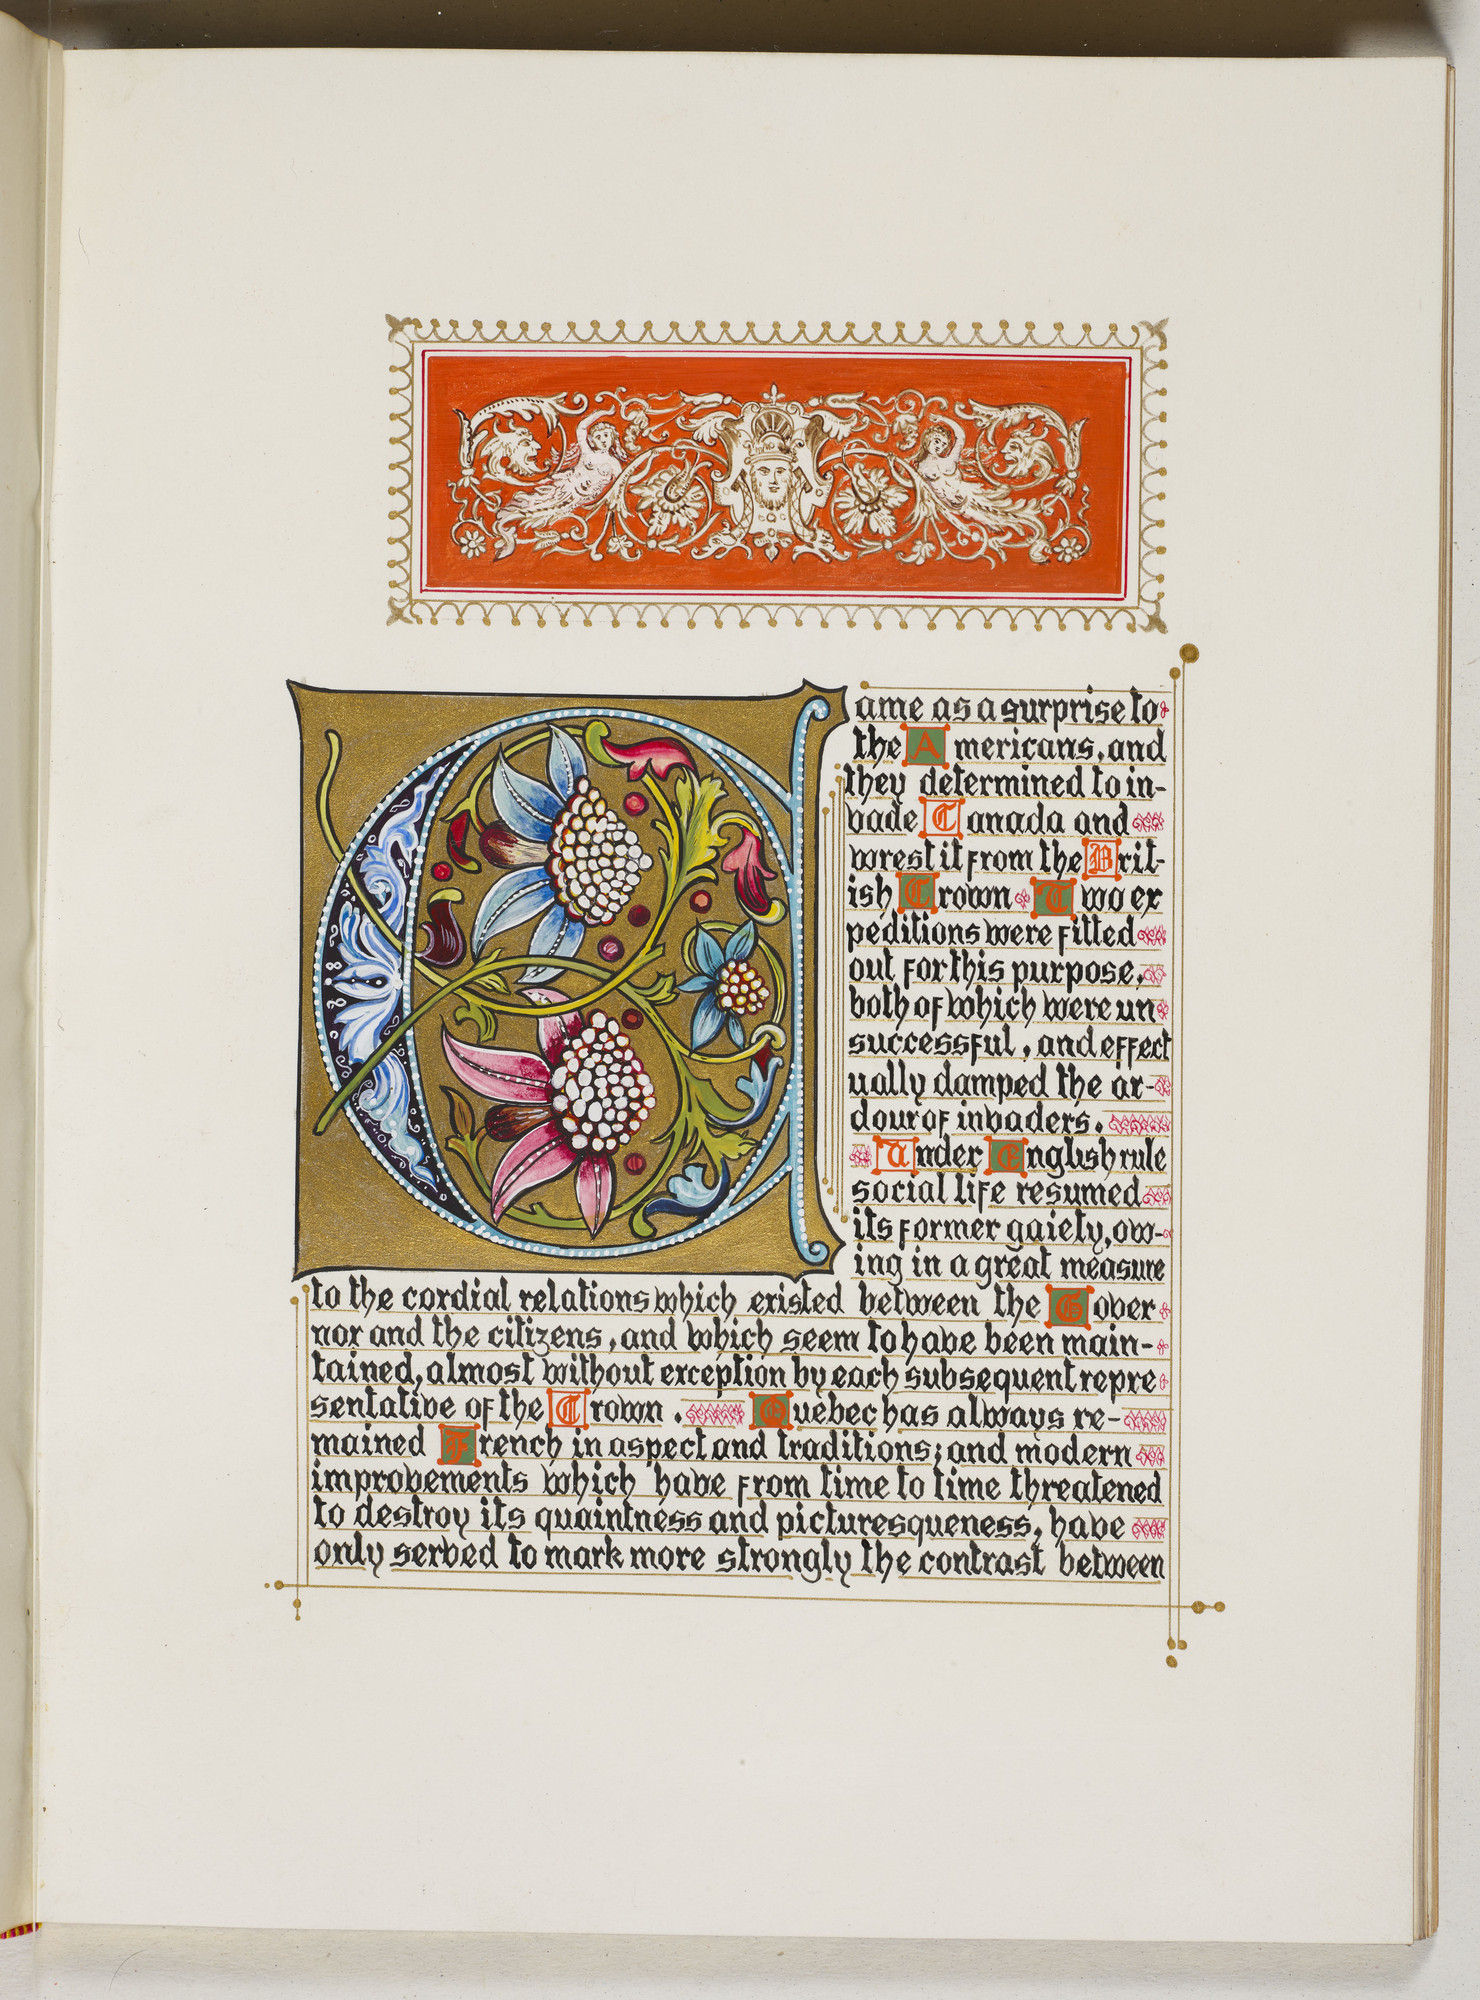 Came as a surprise to
the Americans, and
they determined to in-
vade Canada and
wrest it from the Brit-
ish Crown. Two ex
peditions were fitted
out for this purpose,
both of which were un
successful, and effect
ually damped the ar-
dour of invaders.
Under English rule
social life resumed
its former gaiety, ow-
ing in a great measure
to the cordial relations which existed between the Gover
nor and the citizens, and which seem to have been main-
tained, almost without exception by each subsequent repre
sentative of the Crown. Quebec has always re-
mained French in aspect and traditions; and modern
improvements which have from time to time threatened
to destroy its quaintness and picturesqueness, have
only served to mark more strongly the contrast between